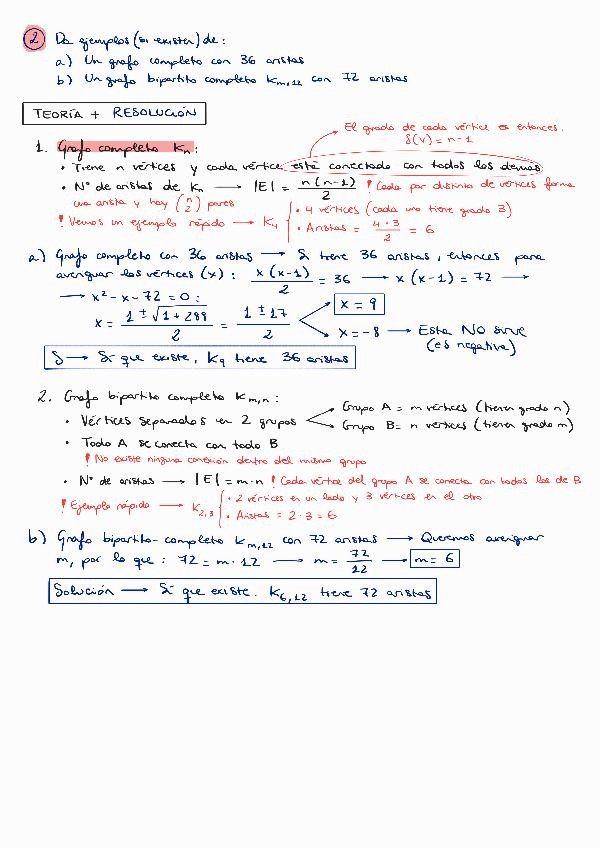 2 Da ejemplos (si existen) de:
a) Un grafo completo con 36 aristas
b) Un grafo bipartito completo Km,12 con 72 aristas
TEORÍA + RESOLUCIÓN
El grado de cada vértice es entonces.
δ(v) = n-1
1. Grafo completo Kn:
• Tiene n vértices y cada vértice está conectado con todos los demás
• Nº de aristas de Kn → |E| = n(n-1)/2 ! Cada par distinto de vértices forma
una arista y hay (n 2) pares
! Veamos un ejemplo rápido → K4
• 4 vértices (cada uno tiene grado 3)
• Aristas = 4·3/2 = 6
a) Grafo completo con 36 aristas → Si tiene 36 aristas, entonces para
averiguar los vértices (x): x(x-1)/2 = 36 → x(x-1) = 72 →
→ x² - x - 72 = 0:
x = 1 ± √1+288 / 2 = 1 ± 17 / 2
x = 9
x = -8 → Esta NO sirve
(es negativa)
S → Sí que existe, K9 tiene 36 aristas
2. Grafo bipartito completo Km,n:
• Vértices separados en 2 grupos
Grupo A = m vértices (tienen grado n)
Grupo B = n vértices (tienen grado m)
• Todo A se conecta con todo B
! No existe ninguna conexión dentro del mismo grupo
• Nº de aristas → |E| = m·n ! Cada vértice del grupo A se conecta con todos los de B
! Ejemplo rápido → K2,3
• 2 vértices en un lado y 3 vértices en el otro
• Aristas = 2·3 = 6
b) Grafo bipartito-completo Km,12 con 72 aristas → Queremos averiguar
m, por lo que: 72 = m·12 → m = 72/12 → m = 6
Solución → Sí que existe. K6,12 tiene 72 aristas